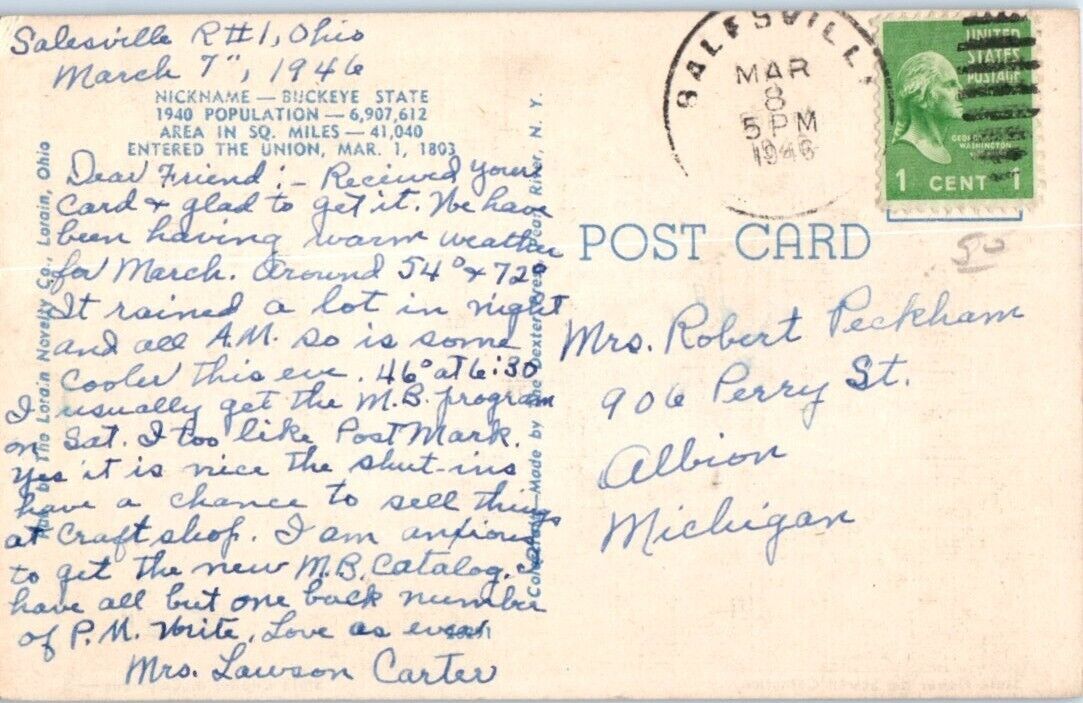 Salesville R#1, Ohio
March 7", 1946
NICKNAME — BUCKEYE STATE
1940 POPULATION — 6,907,612
AREA IN SQ. MILES — 41,040
ENTERED THE UNION, MAR. 1, 1803
Dear Friend:- Received your
card & glad to get it. We have
been having warm weather
for March. Around 54° & 72°
It rained a lot in night
and all A.M. so is some
cooler this eve. 46° at 6:30
I usually get the M.B. program
on Sat. I too like Post Mark.
Yes it is nice the shut-ins
have a chance to sell things
at Craft shop. I am anxious
to get the new M.B. Catalog. I
have all but one back number
of P.M. Write, Love as ever
Mrs. Lawson Carter
by The Lorain Novelty Co., Lorain, Ohio
Made by The Dexter Press, Pearl River, N. Y.
SALESVILL
MAR
8
5 PM
1946
UNITED
STATES
POSTAGE
GEORGE
WASHINGTON
1 CENT 1
POST CARD
50
Mrs. Robert Peckham
906 Perry St.
Albion
Michigan